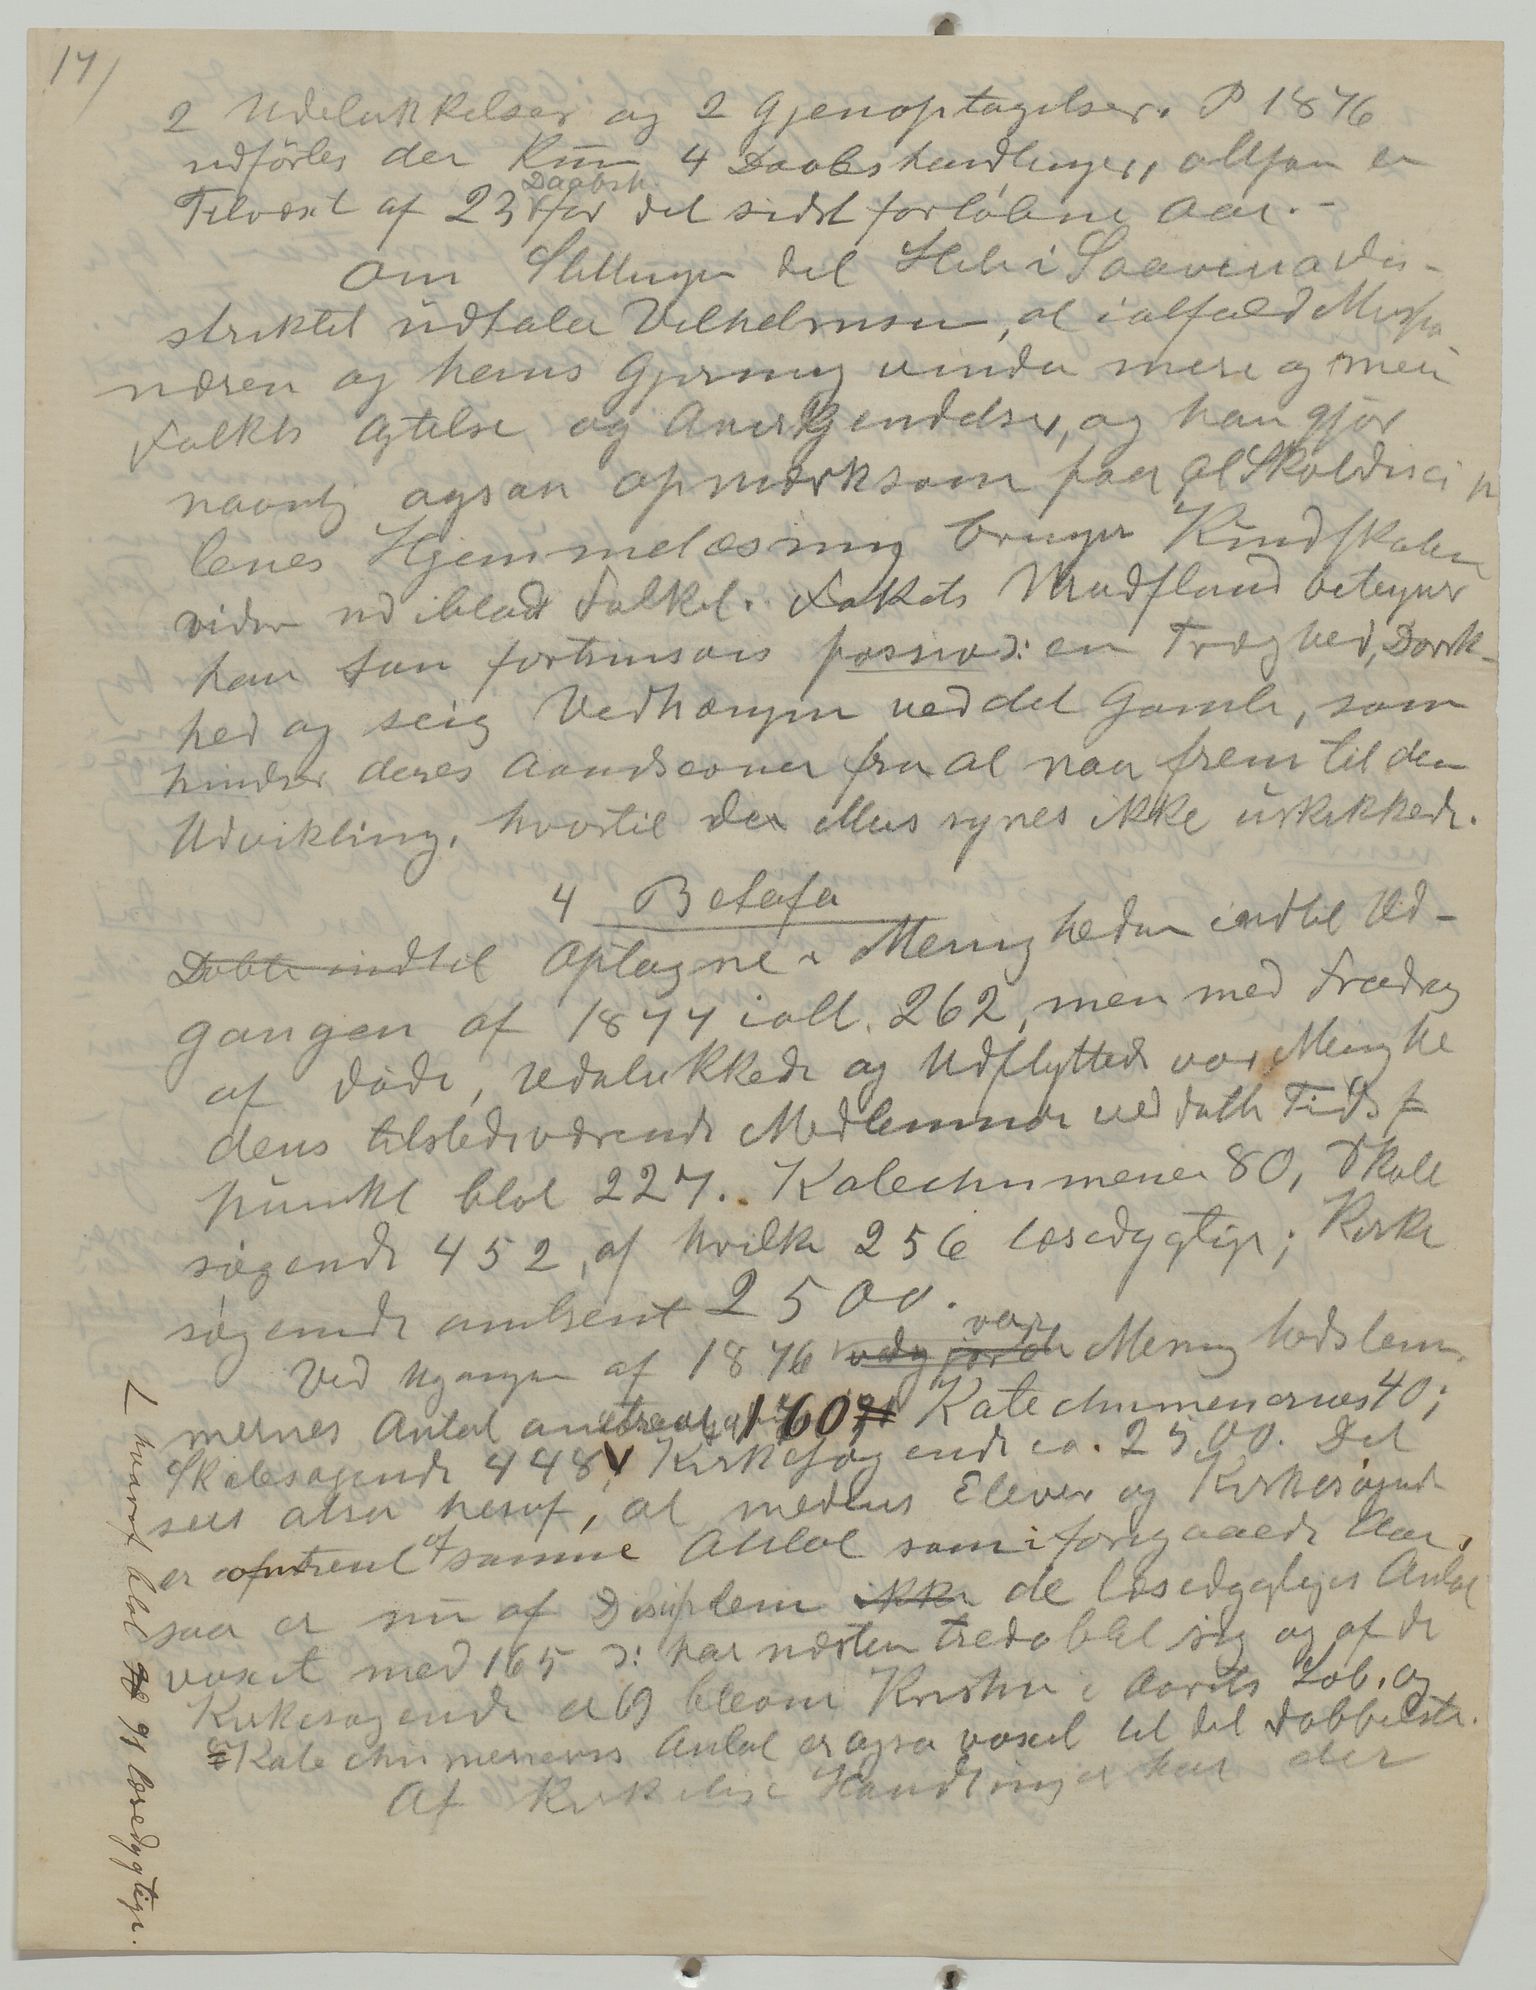 17/
2 Udelukkelser og 2 Gjenoptagelser. I 1876
udførtes der kun 4 Daabshandlinger, altsaa en
Daabsh.
Tilvæxt af 23 for det sidst forløbne Aar. -
Om Stillingen det Hele i Soavina Di-
striktet udtaler Vilhelmsen, at ialfald Missio
næren og hans Gjerning vinder mere og mere
Folkets Agtelse og Anerkjendelse, og han gjør
navnlig ogsaa opmærksom paa at Skoledisci p
lenes Hjemmelæsning bringer Kundskaben
videre ud iblandt Folket. Folkets Modstand betegner
han som fortrinsvis passiv ɔ: en Træghed, Dorsk-
hed og seig Vedhængen ved det Gamle, som
hindrer deres Aandsevner fra at naa frem til den
Udvikling, hvortil de ellers synes ikke uskikkede.
4 Betafo
Døbte indtil Optagne i Menigheden indtil Ud-
gangen af 1877 ialt 262, men med Fradrag
af døde, udelukkede og Udflyttede var Menighe
dens tilstedeværende Medlemmer ved dette Tids
punkt blot 227. Katechumener 80, Skole
søgende 452, af hvilke 256 læsedygtige; Kirke
søgende omtrent 2500.
var
Ved Ugangen af 1876 Menighedslem
mernes Antal 160, Katechumenernes 40;
Skolesøgende 448 V Kirkesøgende ca. 2500. Det
sees altsaa heraf, at medens Elever og Kirkesøgende
er omtrent af samme Antal som i foregaaende Aar,
saa er nu af Disiplene ikke de læsedygtiges Antal
voxet med 165 ɔ: har næsten tredoblet sig og af de
Kirkesøgende er 69 blevne Kristne i Aarets Løb, og
Katechumenernes Antal er ogsaa voxet til det Dobbelte.
Af kirkelige Handlinger har der
L hvoraf blot 91 læsedygtige.